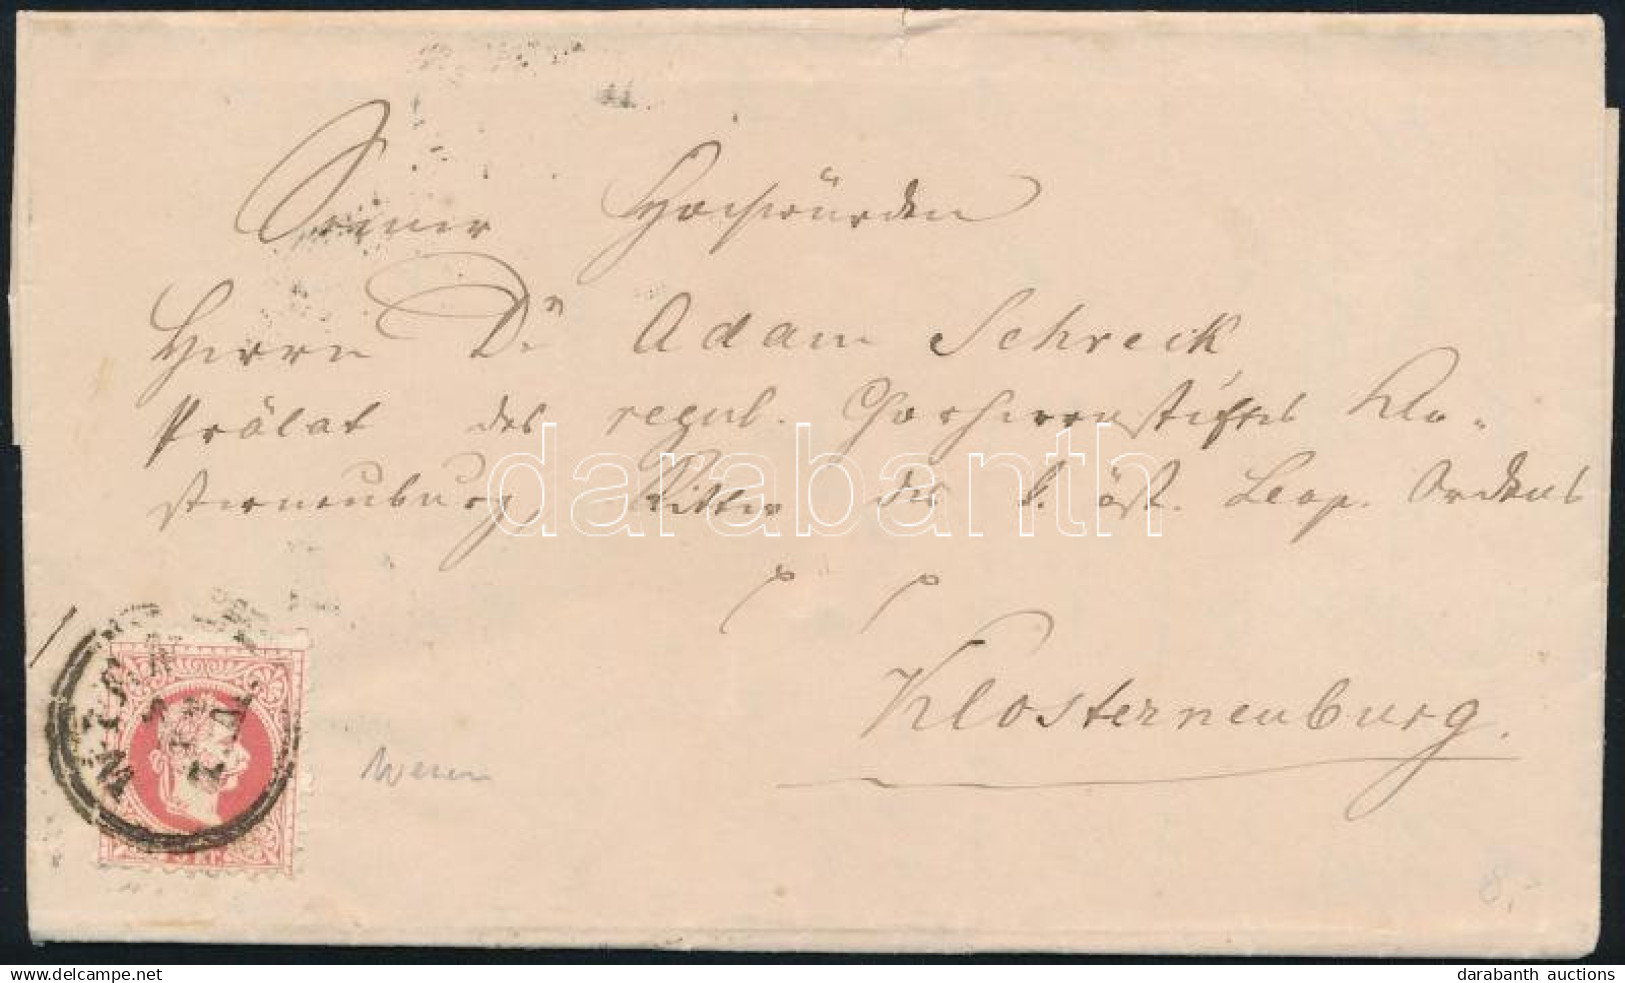 Seiner Hochwürden
Herrn Dr Adam Schreck
Prälat des regul. Chorherrenstiftes Klo-
sterneuburg, Ritter des k. öst. Leop. Ordens
Klosterneuburg.
WIEN
KR
8,-
darabanth
delcampe.net
darabanth auctions